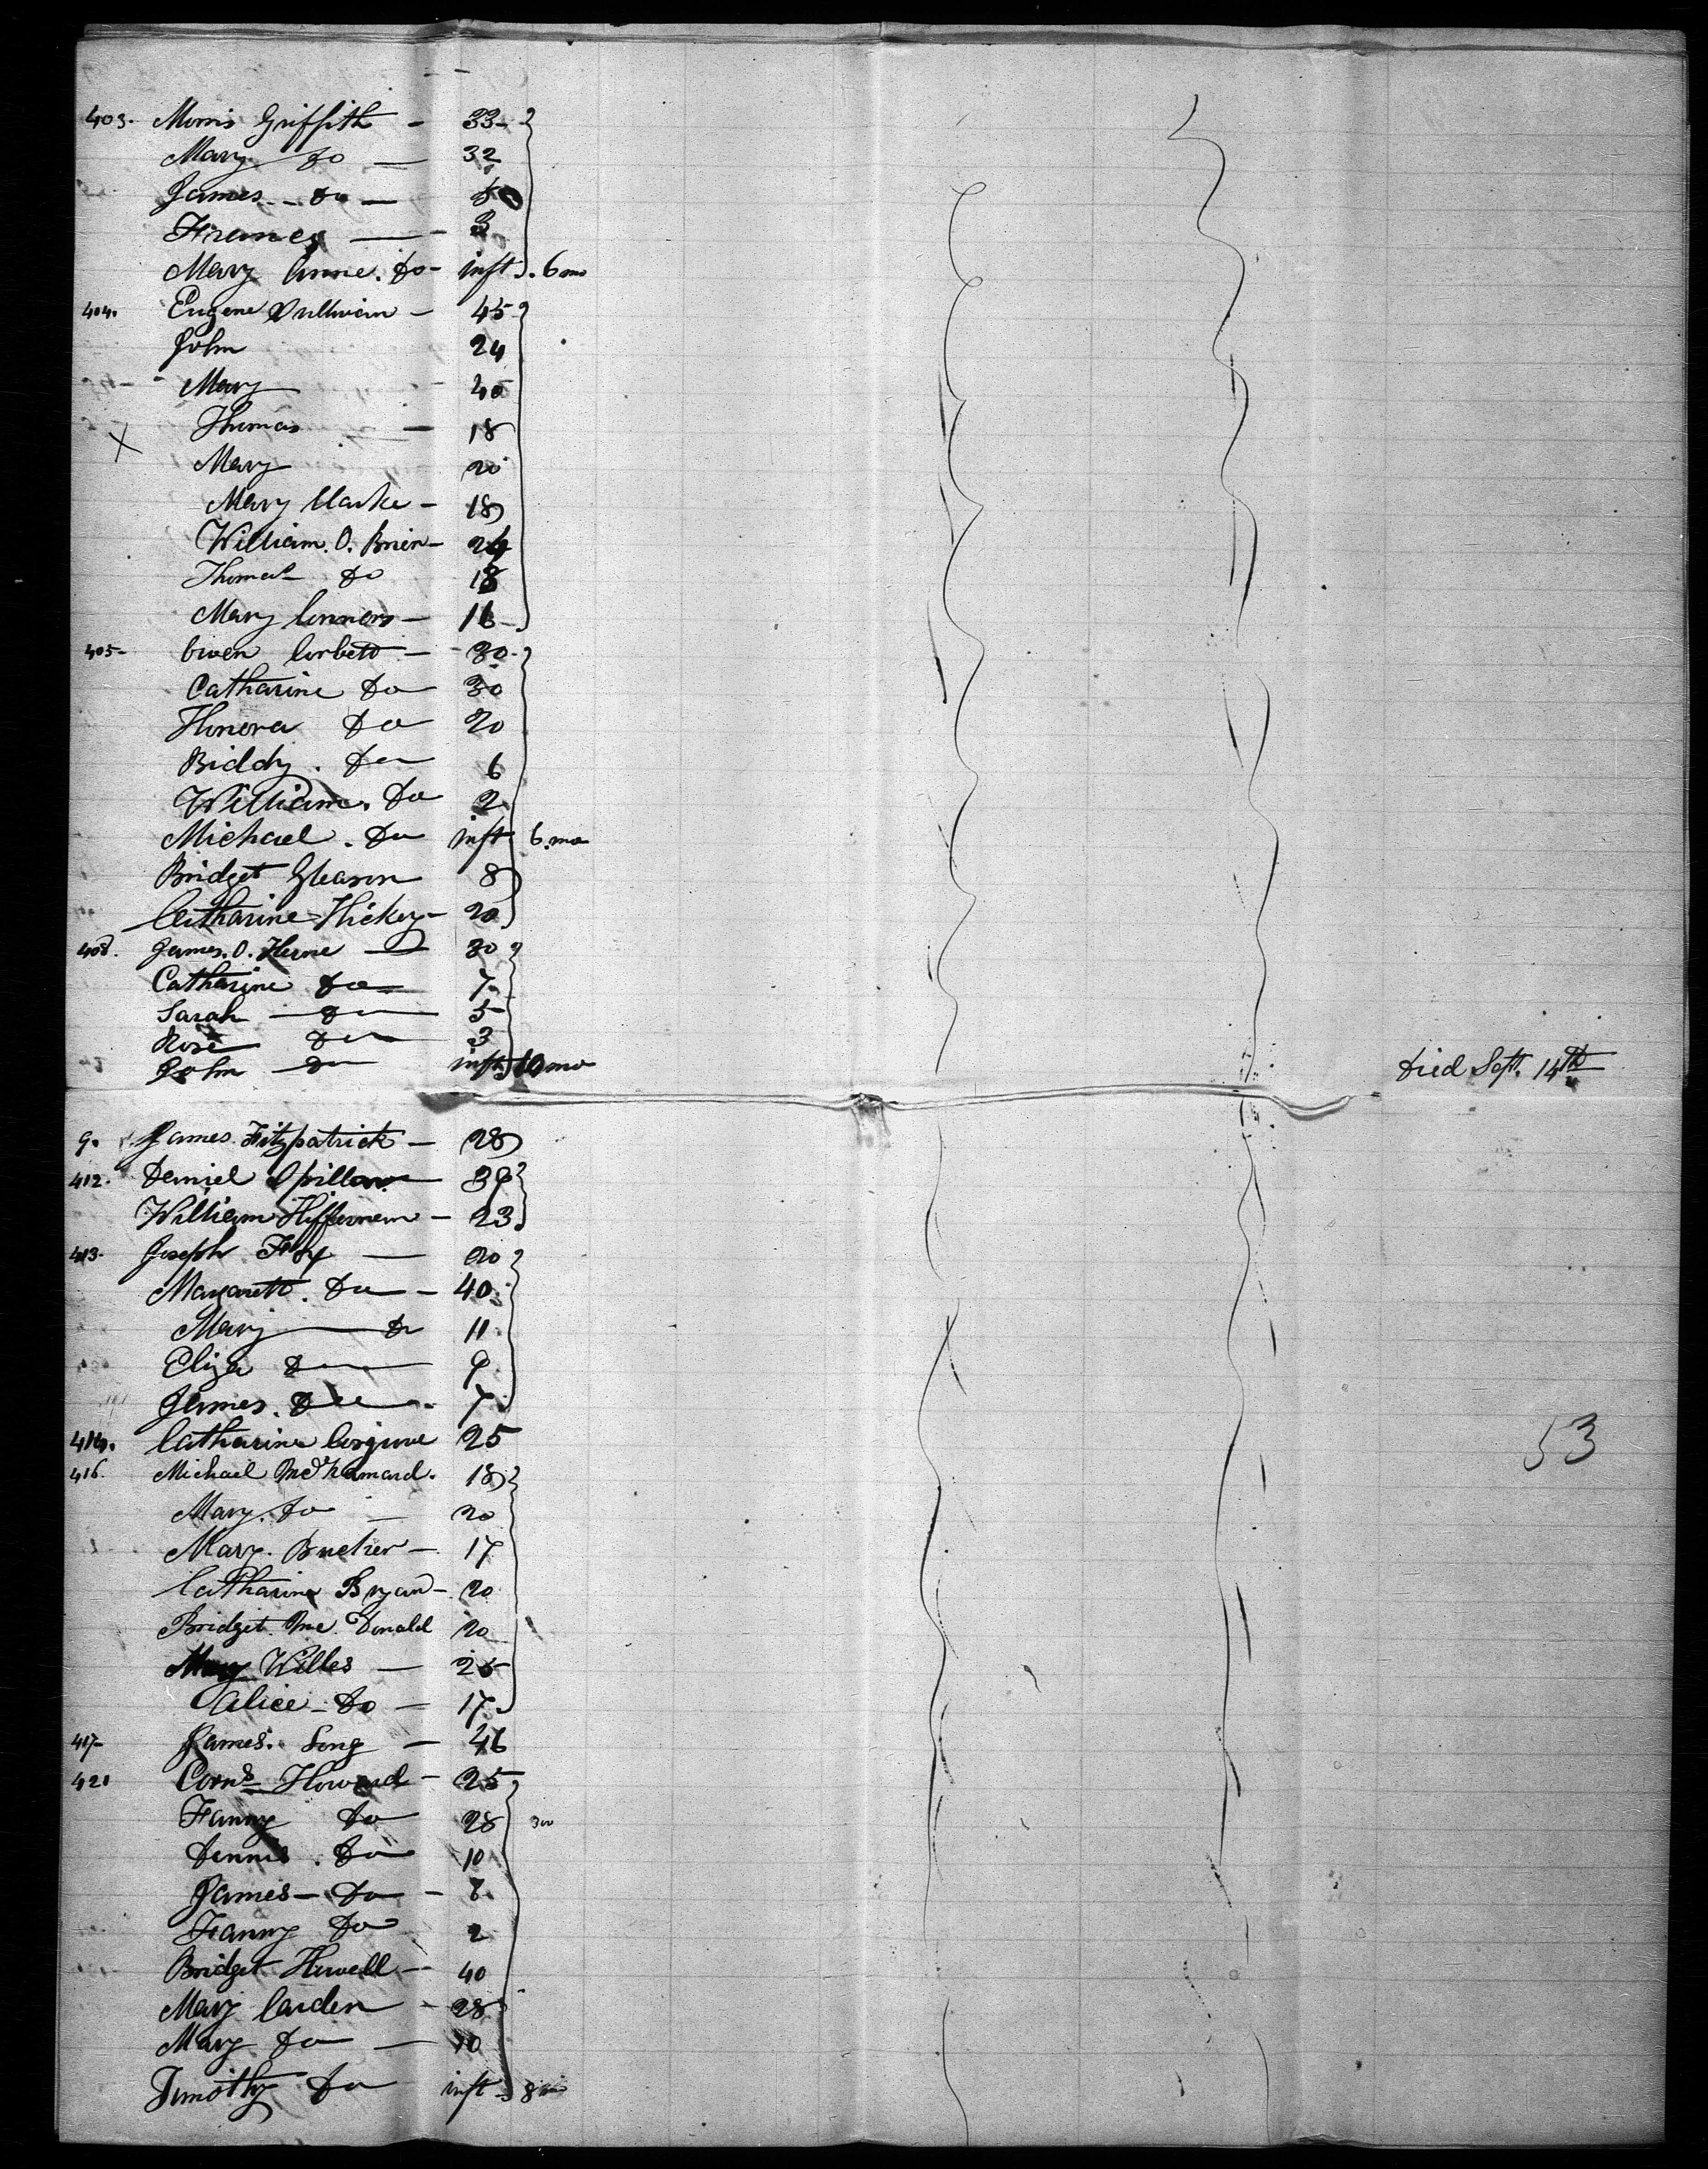 403. Morris Griffith - 33
Mary do - 32
James do - 5
Frances - 3
Mary Anne. do - inft. 6 mo
404. Eugene Sullivan - 45
John 24
Mary 40
Thomas - 18
X
Mary 20
Mary Clarke - 18
William. O. Brien - 24
Thomas do 18
Mary Connors - 16
405- Owen Corbett - 30
Catharine do 30
Honora do 20
Biddy. do 6
William. do 2
Michael. do inft 6. mo
Bridget Gleason 8
Catharine Hickey - 20
408. James. O. Herne - 30
Catharine do 7
Sarah - do 5
Rose do 3
John do inft 10 mo died Sept. 14th
9. James Fitzpatrick - 28
412. Daniel Spillan 39
William Hiffernan - 23
413. Joseph Foy - 20
Margarett. do - 40
Mary do 11
Eliza do 9
James. do 7
414. Catharine Cosgrove 25
53
416. Michael 18
Mary. do - 20
Mary. Bucher - 17
Catharine Bryan - 20
Bridget. Mc. Donald 20
Mary Willes - 25
Alice - do - 17
417- James. Long - 46
421 Corns Howard - 25
Fanny do 28
Dennis. do 10
James - do - 8
Fanny do 2
Bridget Howell - 40
Mary Carden - 28
Mary do - 10
Timothy do inft 8 mo